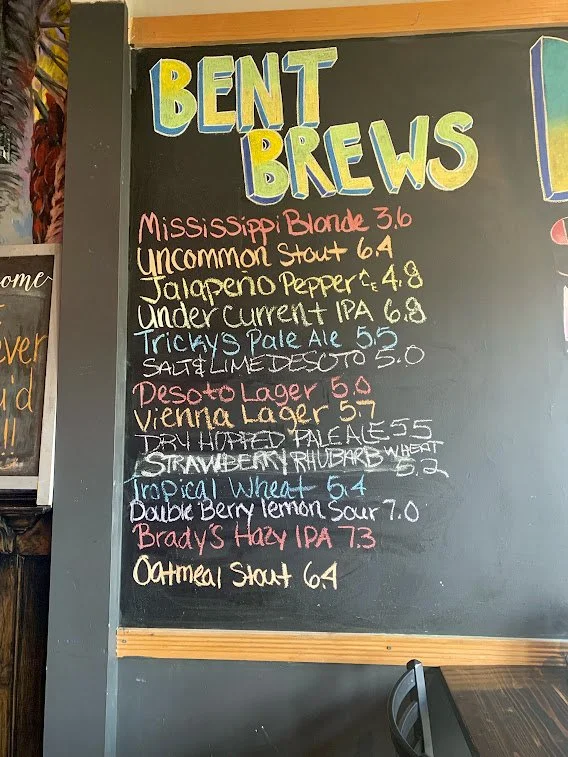 BENT
BREWS
Mississippi Blonde 3.6
Uncommon Stout 6.4
Jalapeño Pepper ALE 4.8
Under Current IPA 6.8
Trickys Pale Ale 5.5
SALT & LIME DESOTO 5.0
Desoto Lager 5.0
Vienna Lager 5.7
DRY HOPPED PALE ALE 55
STRAWBERRY RHUBARB WHEAT
5.2
Tropical Wheat 5.4
Double Berry lemon Sour 7.0
Brady's Hazy IPA 7.3
Oatmeal Stout 6.4
ome
ver
i'd
!!